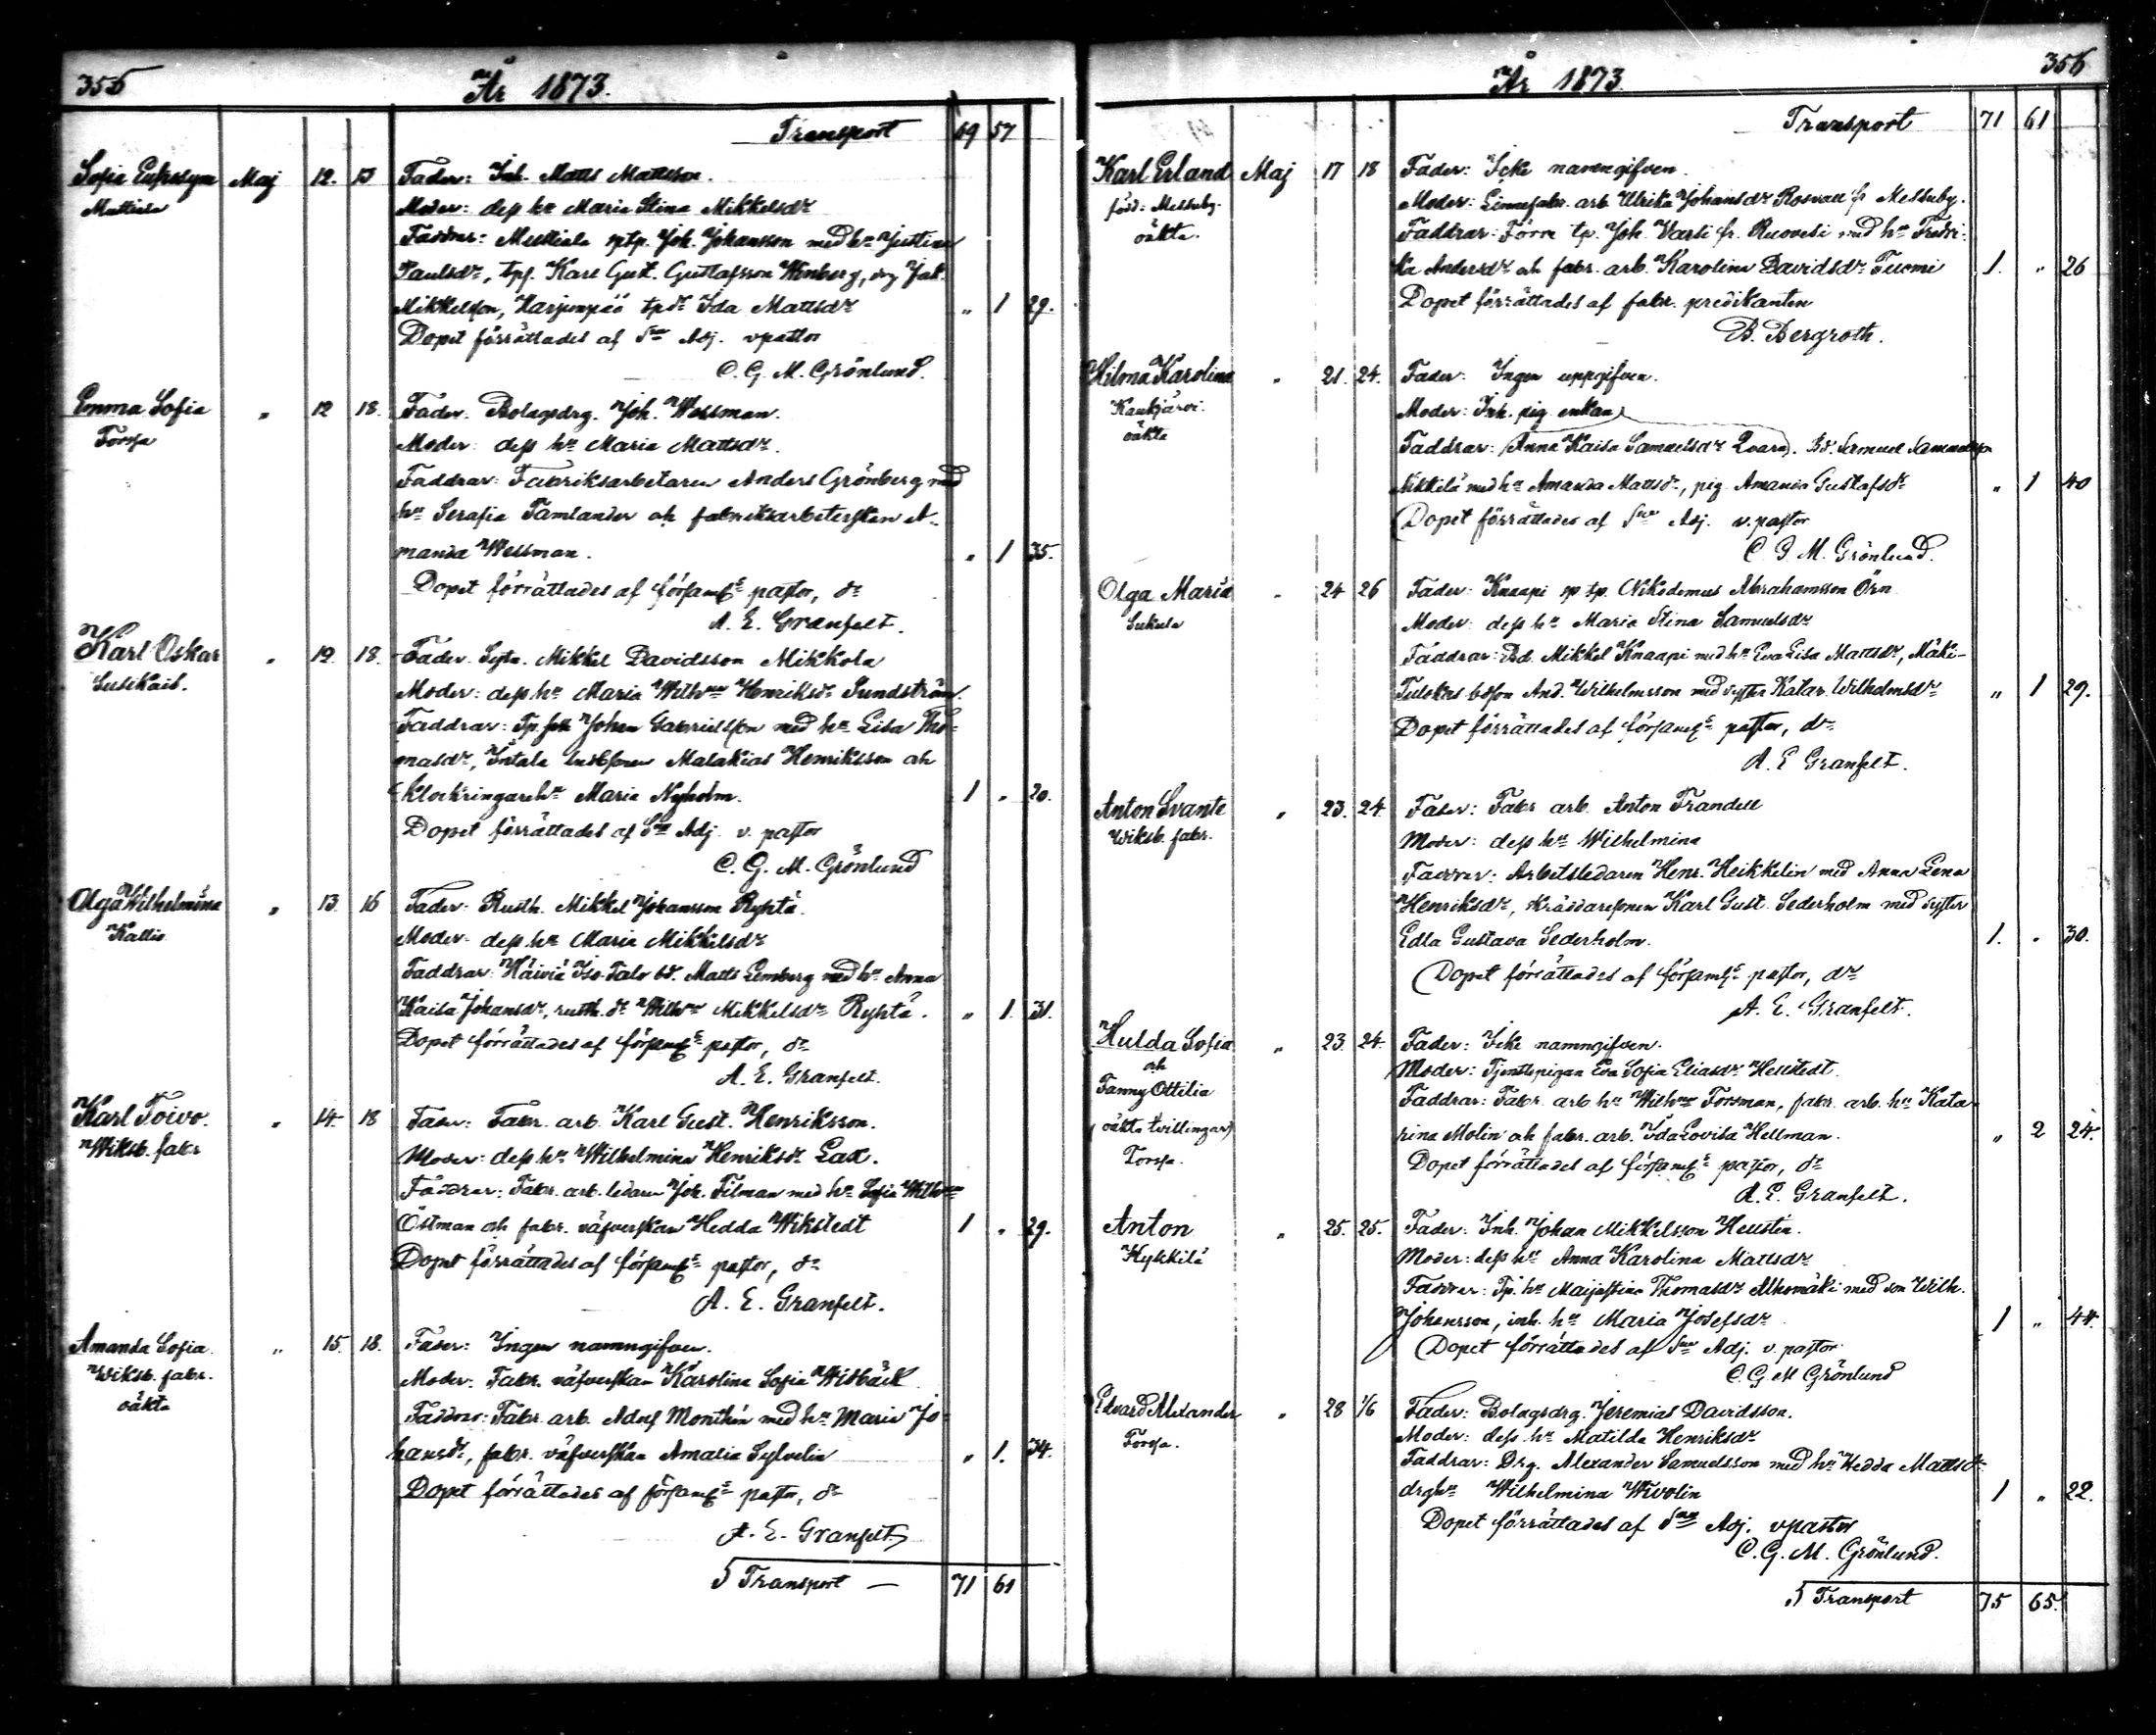 355
År 1873.
Transport 69 57
Sofia Eufrosyne Maj 12. 13 Fader: Inh. Matts Mattsson.
Mustiala
Moder: dess hu Maria Stina Mikkelsdr
Faddrar: Mustiala sptp. Joh. Johansson med hu Justina
Paulsdr, tpf. Karl Gust. Gustafsson Wenberg, drg Jak.
Mikkelsson, Harjunpää tpdr Ida Mattsdr " 1 29.
Dopet förrättades af Sne Adj. vpastor
C. G. M. Grönlund.
Emma Sofia " 12 18. Fader: Bolagsdrg. Joh. Wessman.
Forssa
Moder: dess hu Maria Mattsdr.
Faddrar: Fabriksarbetaren Anders Grönberg med
hu Serafia Tamlander och fabriksarbeterskan A-
manda Wessman. " 1 35.
Dopet förrättades af församls pastor, dr
A. E. Granfelt.
Karl Oskar " 12. 18. Fader: Sytn. Mikkel Davidsson Mikkola
Susikais.
Moder: dess hu Maria Wilhna Henriksdr Sundström.
Faddrar: Tp. Johan Gabrielsson med hu Lisa Tho-
masdr, Intala Malakias Henriksson och
Klockringarehu Maria Nyholm. 1 " 20.
Dopet förrättades af Sne Adj. v. pastor
C. G. M. Grönlund
Olga Wilhelmina " 13. 16 Fader: Rusth. Mikkel Johansson Ryhtä.
Kallio
Moder: dess hu Maria Mikkelsdr
Faddrar: Häiviä Iso-Talo bd. Matts Lemberg med hu Anna
Kaisa Johansdr, rusth. dr Wilhna Mikkelsdr Ryhtä. " 1. 31.
Dopet förrättades af församls pastor, dr
A. E. Granfelt.
Karl Toivo. " 14. 18 Fader: Fabr. arb. Karl Gust. Henriksson.
Wiksb. fabr
Moder: dess hu Wilhelmina Henriksdr Lax.
Faddrar: Fabr. arb. ledaren Joh. Tilman med hu Sofia Wilhna
Östman och fabr. väfverskan Hedda Wikstedt 1 " 29.
Dopet förrättades af församls pastor, dr
A. E. Granfelt.
Amanda Sofia " 15. 18. Fader: Ingen namngifven.
Wiksb. fabr.
oäkta
Moder: Fabr. väfverskan Karolina Sofia Widbäck
Faddrar: Fabr. arb. Adolf Monthén med hu Maria Jo-
hansdr, fabr. väfverskan Amalia Sylvelin " 1. 34.
Dopet förrättades af församls pastor, dr
A. E. Granfelt
Transport — 71 61
356
År 1873.
Transport 71 61
Karl Erland Maj 17 18 Fader: Icke namngifven.
född: Messuby.
oäkta.
Moder: Linnefabr. arb. Ulrika Johansdr Rosvall fr Messuby.
Faddrar: Förre tp. Joh. Varsi fr. Ruovesi med hu Fredri-
ka Andersdr och fabr. arb. Karolina Davidsdr Tuomi 1. " 26
Dopet förrättades af fabr. predikanten
B. Bergroth.
Hilma Karolina " 21. 24. Fader: Ingen uppgifven.
Kaukjärvi.
oäkta
Moder: Inh. pig. enkan
Faddrar: Anna Kaisa Samuelsdr Qvarn. Bd. Samuel Samuelsson
Nikkilä med hu Amanda Mattsdr, pig. Amanda Gustafsdr " 1 40
Dopet förrättades af Sne Adj. v. pastor
C. G. M. Grönlund.
Olga Maria " 24 26 Fader: Knaapi sp tp. Nikodemus Abrahamsson Örn
Sukula
Moder: dess hu Maria Stina Samuelsdr
Faddrar: Bd. Mikkel Knaapi med hu Eva Lisa Mattsdr, Mäki-
Tulokas bdson And. Wilhelmsson med syster Katar. Wilhelmsdr " 1 29.
Dopet förrättades af församls pastor, dr
A. E. Granfelt.
Anton Svante " 23. 24. Fader: Fabr. arb. Anton Frandell
Wiksb. fabr.
Moder: dess hu Wilhelmina
Faddrar: Arbetsledaren Henr. Heikkelin med Anna Lena
Henriksdr, skräddaresonen Karl Gust. Sederholm med syster
Edla Gustava Sederholm. 1. " 30.
Dopet förrättades af församls pastor, dr
A. E. Granfelt.
Hulda Sofia " 23. 24. Fader: Icke namngifven.
och
Fanny Ottilia
(oäkta tvillingar)
Forssa.
Moder: Tjenstepigan Eva Sofia Eliasdr Hellstedt.
Faddrar: Fabr. arb. hu Wilhna Forsman, fabr. arb. hu Kata-
rina Molin och fabr. arb. Ida Lovisa Hellman. " 2 24.
Dopet förrättades af församls pastor, dr
A. E. Granfelt.
Anton " 25. 25. Fader: Inh. Johan Mikkelsson Hellstén.
Kykkilä
Moder: dess hu Anna Karolina Mattsdr
Faddrar: Tp. hu Maijastina Thomasdr Alhomäki med son Wilh.
Johansson, inh. hu Maria Josefsdr 1 " 44.
Dopet förrättades af Sne Adj. v. pastor
C. G. M Grönlund
Edvard Alexander " 28 1/6 Fader: Bolagsdrg. Jeremias Davidsson.
Forssa.
Moder: dess hu Matilda Henriksdr
Faddrar: Drg. Alexander Samuelsson med hu Hedda Mattsdr
drghu Wilhelmina Wivolin 1 " 22.
Dopet förrättades af Sne Adj. vpastor
C. G. M. Grönlund.
Transport 75 65.